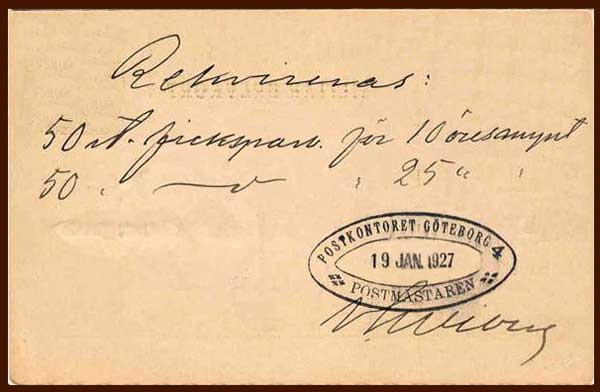 Rekvireras:
50 st. fickspar. för 10 öresmynt
50 " " 25 " "
POSTKONTORET GÖTEBORG 4
19 JAN. 1927
POSTMÄSTAREN